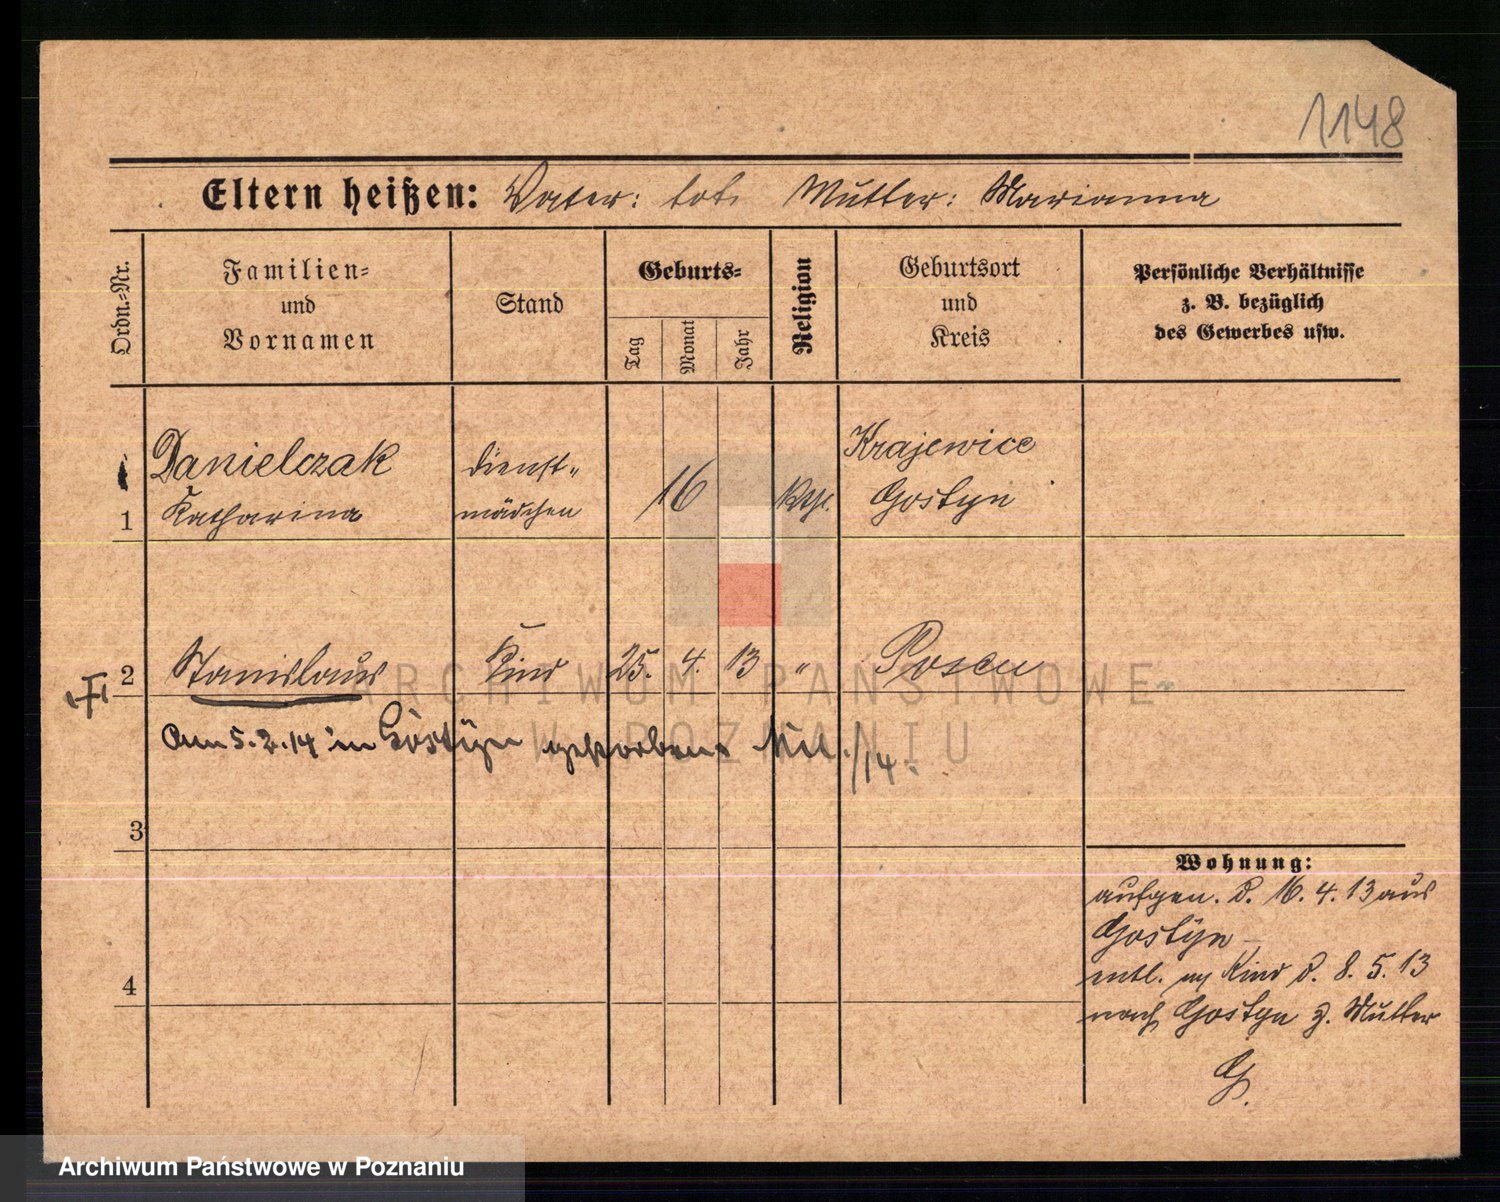 1148
Eltern heißen: Vater: tot. Mutter: Marianna
Ordn.-Nr.
Familien-
und
Vornamen
Stand
Geburts-
Tag
Monat
Jahr
Religion
Geburtsort
und
Kreis
Persönliche Verhältnisse
z. B. bezüglich
des Gewerbes usw.
Danielczak dienst- Krajewice
1 Katharina mädchen 16 kth. Gostyn
2 Stanislaus Kind 25. 4. 13 " Posen
Am 5.2.14 in Gostÿn gestorben. /14.
3
4
Wohnung:
aufgen. d. 16. 4. 13 aus
Gostÿn –
entl. m Kind d. 8. 5. 13
nach Gostyn z. Mutter
G.
ARCHIWUM PAŃSTWOWE
W POZNANIU
Archiwum Państwowe w Poznaniu